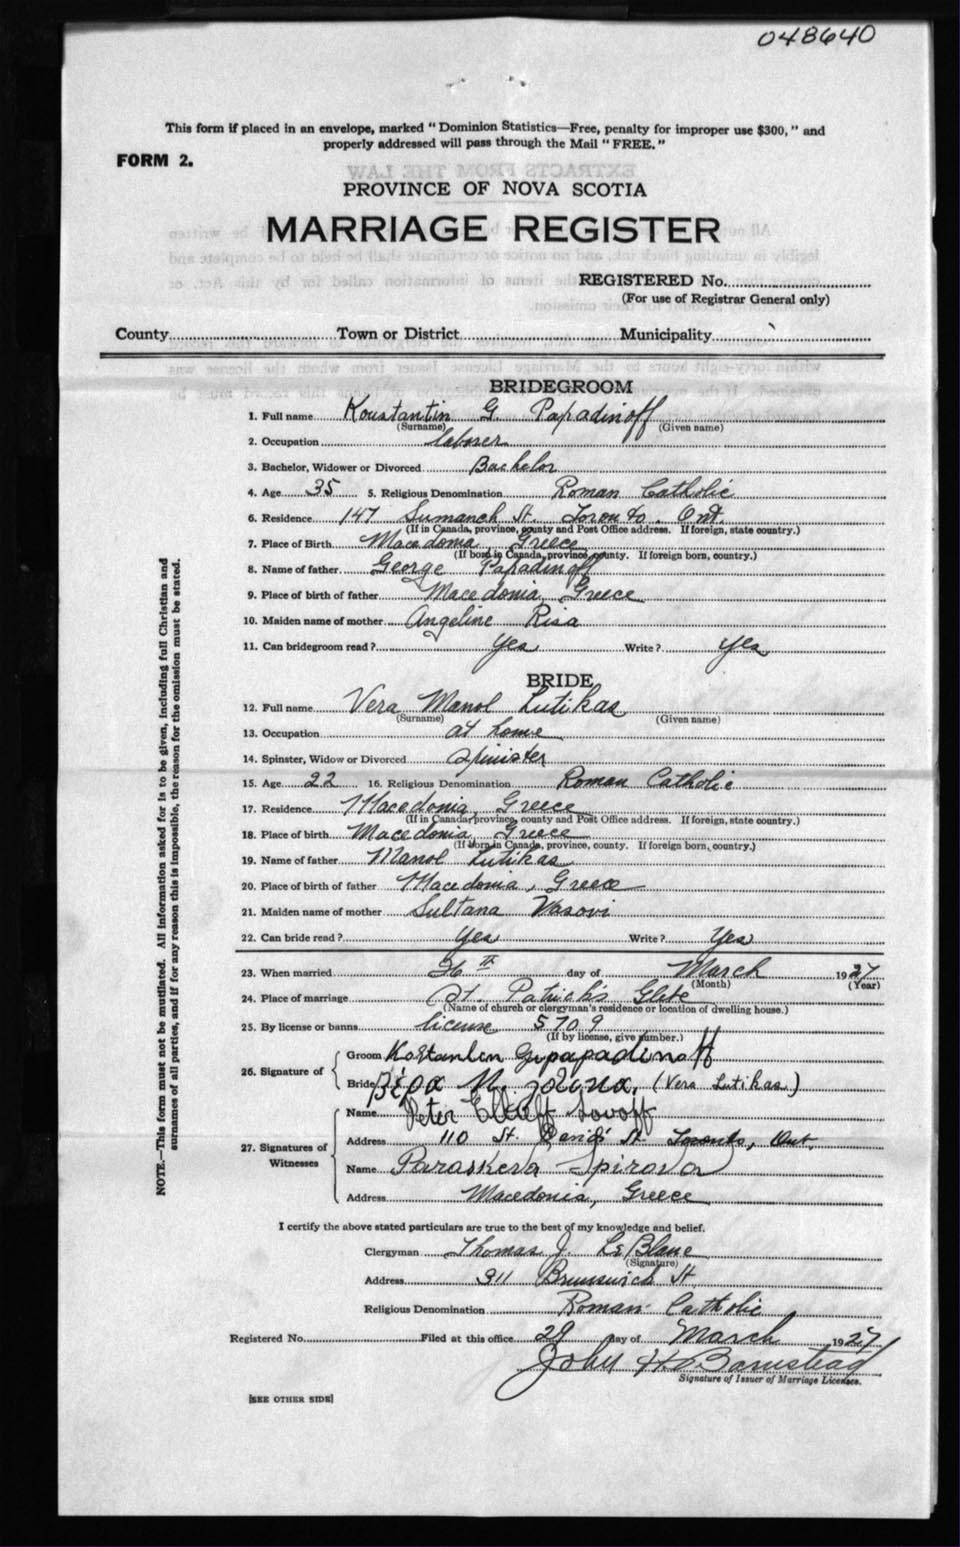 048640
This form if placed in an envelope, marked "Dominion Statistics—Free, penalty for improper use $300," and
properly addressed will pass through the Mail "FREE."
FORM 2.
PROVINCE OF NOVA SCOTIA
MARRIAGE REGISTER
REGISTERED No.
(For use of Registrar General only)
County Town or District Municipality
BRIDEGROOM
1. Full name Konstantin G Papadinoff
(Surname) (Given name)
2. Occupation laborer
3. Bachelor, Widower or Divorced Bachelor
4. Age 35 5. Religious Denomination Roman Catholic
6. Residence 147 St. Toronto. Ont.
(If in Canada, province, county and Post Office address. If foreign, state country.)
7. Place of Birth Macedonia, Greece
(If born in Canada, province, county. If foreign born, country.)
8. Name of father George Papadinoff
9. Place of birth of father Macedonia, Greece
10. Maiden name of mother Angeline Risa
11. Can bridegroom read? Yes Write? Yes
BRIDE
12. Full name Vera Manol Lutikas
(Surname) (Given name)
13. Occupation at home
14. Spinster, Widow or Divorced Spinister
15. Age 22 16. Religious Denomination Roman Catholic
17. Residence Macedonia, Greece
(If in Canada, province, county and Post Office address. If foreign, state country.)
18. Place of birth Macedonia, Greece
(If born in Canada, province, county. If foreign born, country.)
19. Name of father Manol Lutikas
20. Place of birth of father Macedonia, Greece
21. Maiden name of mother Sultana Vasovi
22. Can bride read? Yes Write? Yes
23. When married 26th day of March 1927
(Month) (Year)
24. Place of marriage St. Patrick's Glebe
(Name of church or clergyman's residence or location of dwelling house.)
25. By license or banns license 5709
(If by license, give number.)
26. Signature of
Groom Kostantin G papadinoff
Bride (Vera Lutikas)
27. Signatures of Witnesses
Name Peter
Address 110 St. David St Toronto, Ont.
Name Paraskeva Spirova
Address Macedonia, Greece
I certify the above stated particulars are true to the best of my knowledge and belief.
Clergyman Thomas J. LeBlanc
(Signature)
Address 311 Brunswick St.
Religious Denomination Roman Catholic
Registered No. Filed at this office 29 day of March 1927
John H Barnstead
Signature of Issuer of Marriage Licenses.
[SEE OTHER SIDE]
NOTE.—This form must not be mutilated. All information asked for is to be given, including full Christian and
surnames of all parties, and if for any reason this is impossible, the reason for the omission must be stated.